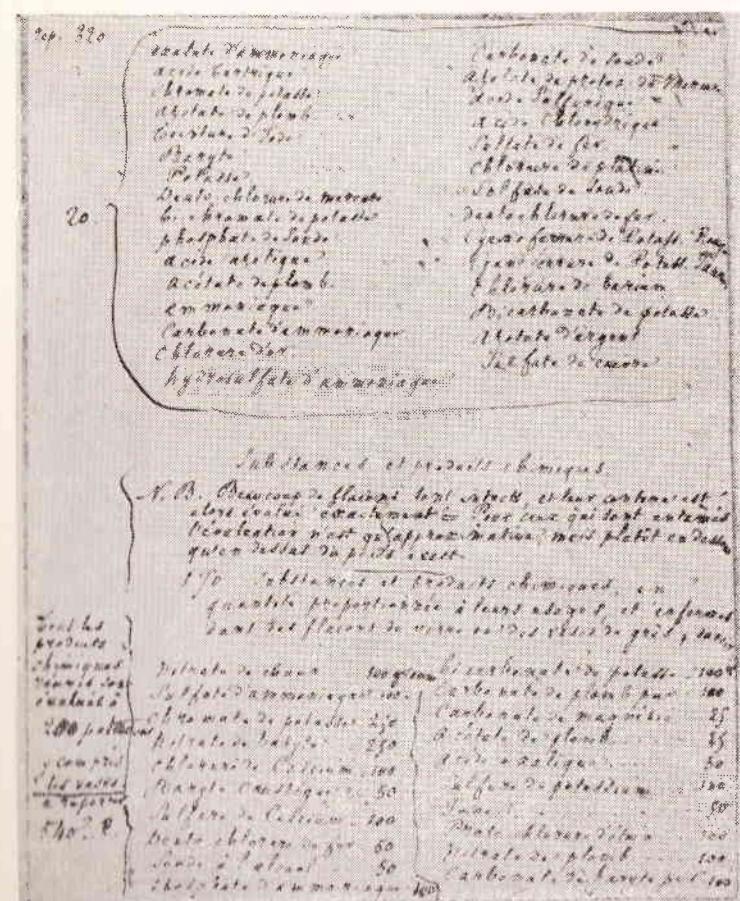 rep. 320
oxalate d'ammoniaque
acide tartrique
Chromate de potasse
Azotate de plomb
Teinture d'Iode
Baryte
Potasse
Deuto chlorure de mercure
bi chromate de potasse
20.
phosphate de soude
acide azotique
acétate de plomb
ammoniaque
Carbonate d'ammoniaque
Chlorure d'or.
hydrosulfate d'ammoniaque
Carbonate de soude
Azotate de protox. de Mercure
acide sulfurique
acide Chlorydrique
Sulfate de fer
Chlorure de platine
Sulfate de soude
deutochlorure de fer.
Cyano ferrure de Potass. Rouge
Cyano ferrure de Potass. Jaune
Chlorure de barium
Bicarbonate de potasse
Azotate d'argent
Sulfate de cuivre
Substances et produits chimiques
N. B. Beaucoup de flacons sont intacts, et leur contenu est
alors évalué exactement. Pour ceux qui sont entamés
l'évaluation n'est qu'approximative, mais plutôt en dessous
qu'en dessus du poids exact.
150 Substances et produits chimiques, en
quantité proportionnée à leurs usages, et enfermés
dans des flacons de verre ou des vases de grès,
Tous les
produits
chimiques
réunis sont
évalués à
200
y compris
les vases
à reporter
540
Nitrate de chaux 100
Sulfate d'ammoniaque 100
Chromate de potasse 250
Nitrate de baryte 250
Chlorure de Calcium 100
Baryte Caustique 50
Sulfure de Calcium 100
Deuto chlorure de fer 60
Soude à l'alcool 50
Phosphate d'ammoniaque 100
bicarbonate de potasse 100
Carbonate de plomb pur 100
Carbonate de magnésie 25
Acétate de plomb 25
Acide oxalique 50
Sulfure de potassium 100
50
Proto chlorure d'étain 100
Nitrate de plomb 100
Carbonate de baryte 100